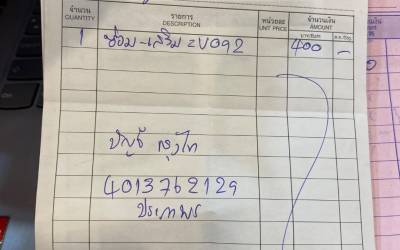 จำนวน รายการ หน่วยละ จำนวนเงิน
QUANTITY DESCRIPTION UNIT PRICE AMOUNT
1 ซ่อม-เสริม 2V092 400 -
บัญชี กรุงไทย
4013762129
ประภาพร